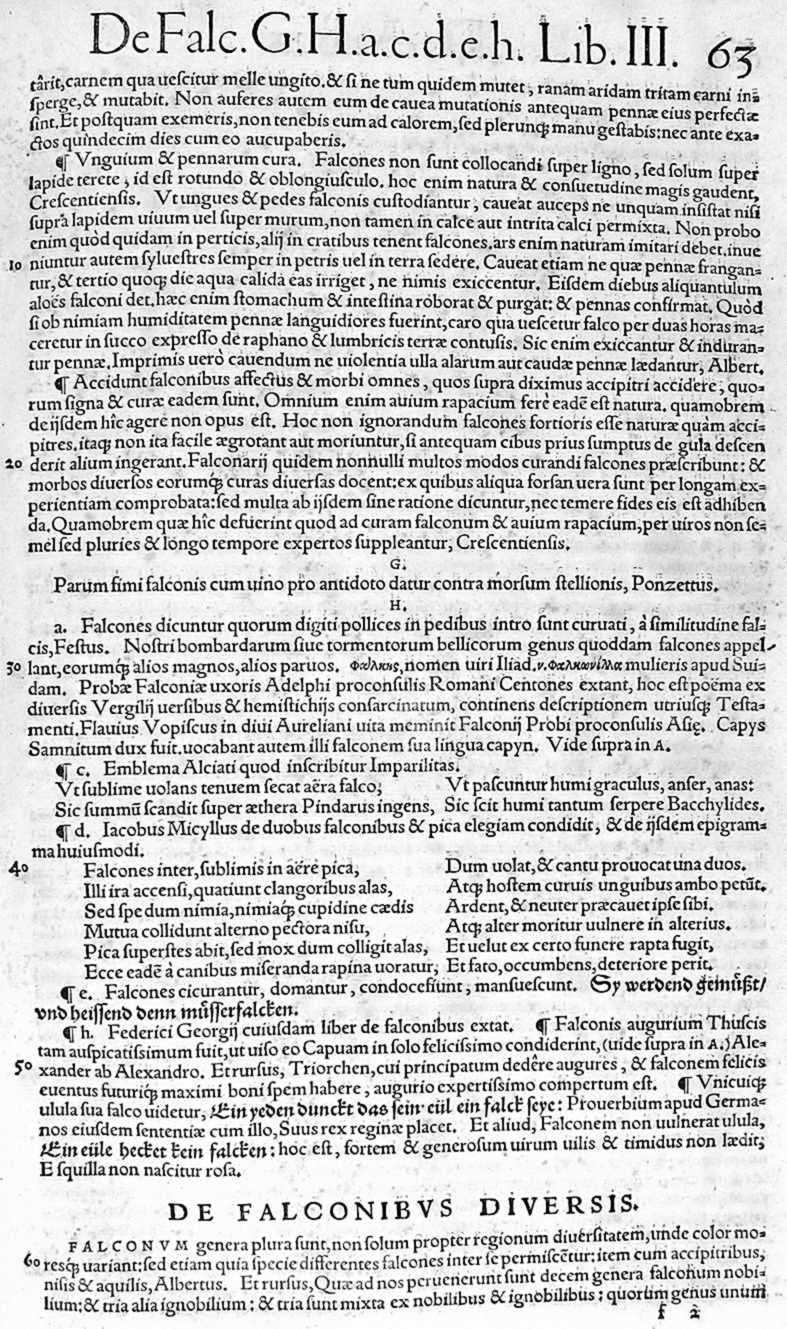 De Falc. G. H. a. c. d. e. h. Lib. III. 63
târit, carnem qua uescitur melle ungito. & si ne tum quidem mutet, ranam aridam tritam carni in=
sperge, & mutabit. Non auferes autem eum de cauea mutationis antequam pennæ eius perfectæ
sint. Et postquam exemeris, non tenebis eum ad calorem, sed plerunq; manu gestabis: nec ante exa=
ctos quindecim dies cum eo aucupaberis.
¶ Vnguium & pennarum cura. Falcones non sunt collocandi super ligno, sed solum super
lapide terete, id est rotundo & oblongiusculo. hoc enim natura & consuetudine magis gaudent,
Crescentiensis. Vt ungues & pedes falconis custodiantur, caueat auceps ne unquam insistat nisi
supra lapidem uiuum uel super murum, non tamen in calce aut intrita calci permixta. Non probo
enim quòd quidam in perticis, alij in cratibus tenent falcones. ars enim naturam imitari debet. inue
10 niuntur autem syluestres semper in petris uel in terra sedere. Caueat etiam ne quæ pennæ frangan=
tur, & tertio quoq; die aqua calida eas irriget, ne nimis exiccentur. Eisdem diebus aliquantulum
aloës falconi det. hæc enim stomachum & intestina roborat & purgat: & pennas confirmat. Quòd
si ob nimiam humiditatem pennæ languidiores fuerint, caro qua uescetur falco per duas horas ma=
ceretur in succo expresso de raphano & lumbricis terræ contusis. Sic enim exiccantur & induran=
tur pennæ. Imprimis uerò cauendum ne uiolentia ulla alarum aut caudæ pennæ lædantur, Albert.
¶ Accidunt falconibus affectus & morbi omnes, quos supra diximus accipitri accidere, quo=
rum signa & curæ eadem sunt. Omnium enim auium rapacium ferè eadē est natura. quamobrem
de ijsdem hîc agere non opus est. Hoc non ignorandum falcones fortioris esse naturæ quàm acci=
pitres. itaq; non ita facile ægrotant aut moriuntur, si antequam cibus prius sumptus de gula descen
20 derit alium ingerant. Falconarij quidem nonnulli multos modos curandi falcones præscribunt: &
morbos diuersos eorumq; curas diuersas docent: ex quibus aliqua forsan uera sunt per longam ex=
perientiam comprobata: sed multa ab ijsdem sine ratione dicuntur, nec temere fides eis est adhiben
da. Quamobrem quæ hîc defuerint quod ad curam falconum & auium rapacium, per uiros non se=
mel sed pluries & longo tempore expertos suppleantur, Crescentiensis.
G.
Parum fimi falconis cum uino pro antidoto datur contra morsum stellionis, Ponzettus.
H.
a. Falcones dicuntur quorum digiti pollices in pedibus intro sunt curuati, à similitudine fal=
cis, Festus. Nostri bombardarum siue tormentorum bellicorum genus quoddam falcones appel=
30 lant, eorumq; alios magnos, alios paruos. Φάλκης, nomen uiri Iliad. ν. Φαλκωνίλλα mulieris apud Sui=
dam. Probæ Falconiæ uxoris Adelphi proconsulis Romani Centones extant, hoc est poëma ex
diuersis Vergilij uersibus & hemistichijs consarcinatum, continens descriptionem utriusq; Testa=
menti. Flauius Vopiscus in diui Aureliani uita meminit Falconij Probi proconsulis Asię. Capys
Samnitum dux fuit. uocabant autem illi falconem sua lingua capyn. Vide supra in A.
¶ c. Emblema Alciati quod inscribitur Imparilitas.
Vt sublime uolans tenuem secat aëra falco, Vt pascuntur humi graculus, anser, anas:
Sic summū scandit super æthera Pindarus ingens, Sic scit humi tantum serpere Bacchylides.
¶ d. Iacobus Micyllus de duobus falconibus & pica elegiam condidit, & de ijsdem epigram=
ma huiusmodi.
40 Falcones inter, sublimis in aëre pica, Dum uolat, & cantu prouocat una duos.
Illi ira accensi, quatiunt clangoribus alas, Atq; hostem curuis unguibus ambo petūt.
Sed spe dum nimia, nimiaq; cupidine cædis Ardent, & neuter præcauet ipse sibi.
Mutua collidunt alterno pectora nisu, Atq; alter moritur uulnere in alterius.
Pica superstes abit, sed mox dum colligit alas, Et uelut ex certo funere rapta fugit,
Ecce eadē à canibus miseranda rapina uoratur, Et fato, occumbens, deteriore perit.
¶ e. Falcones cicurantur, domantur, condocefiunt, mansuescunt. Sy werdend gemüßt/
vnd heissend denn müsserfalcken.
¶ h. Federici Georgij cuiusdam liber de falconibus extat. ¶ Falconis augurium Thuscis
tam auspicatissimum fuit, ut uiso eo Capuam in solo felicissimo condiderint, (uide supra in A.) Ale=
50 xander ab Alexandro. Et rursus, Triorchen, cui principatum dedêre augures, & falconem felicis
euentus futuriq; maximi boni spem habere, augurio expertissimo compertum est. ¶ Vnicuiq;
ulula sua falco uidetur, Ein yeden dunckt das sein eül ein falck seye: Prouerbium apud Germa=
nos eiusdem sententiæ cum illo, Suus rex reginæ placet. Et aliud, Falconem non uulnerat ulula,
Ein eüle hecket kein falcken: hoc est, fortem & generosum uirum uilis & timidus non lædit;
E squilla non nascitur rosa.
DE FALCONIBVS DIVERSIS.
FALCONVM genera plura sunt, non solum propter regionum diuersitatem, unde color mo=
60 resq; uariant: sed etiam quia specie differentes falcones inter se permiscētur: item cum accipitribus,
nisis & aquilis, Albertus. Et rursus, Quæ ad nos peruenerunt sunt decem genera falconum nobi=
lium: & tria alia ignobilium: & tria sunt mixta ex nobilibus & ignobilibus: quorum genus unum
f 2